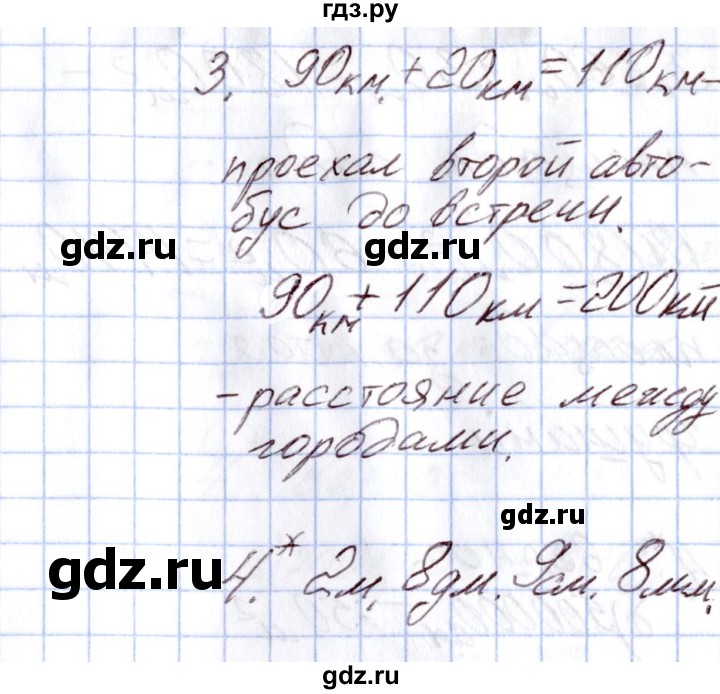 гдз.ру
3. 90км. + 20км = 110км -
проехал второй авто-
бус до встречи.
gdz.ru gdz.ru
90км + 110км = 200км
- расстояние между
городами.
gdz.ru
4.* 2м. 8дм. 9см. 8мм.
gdz.ru
gdz.ru